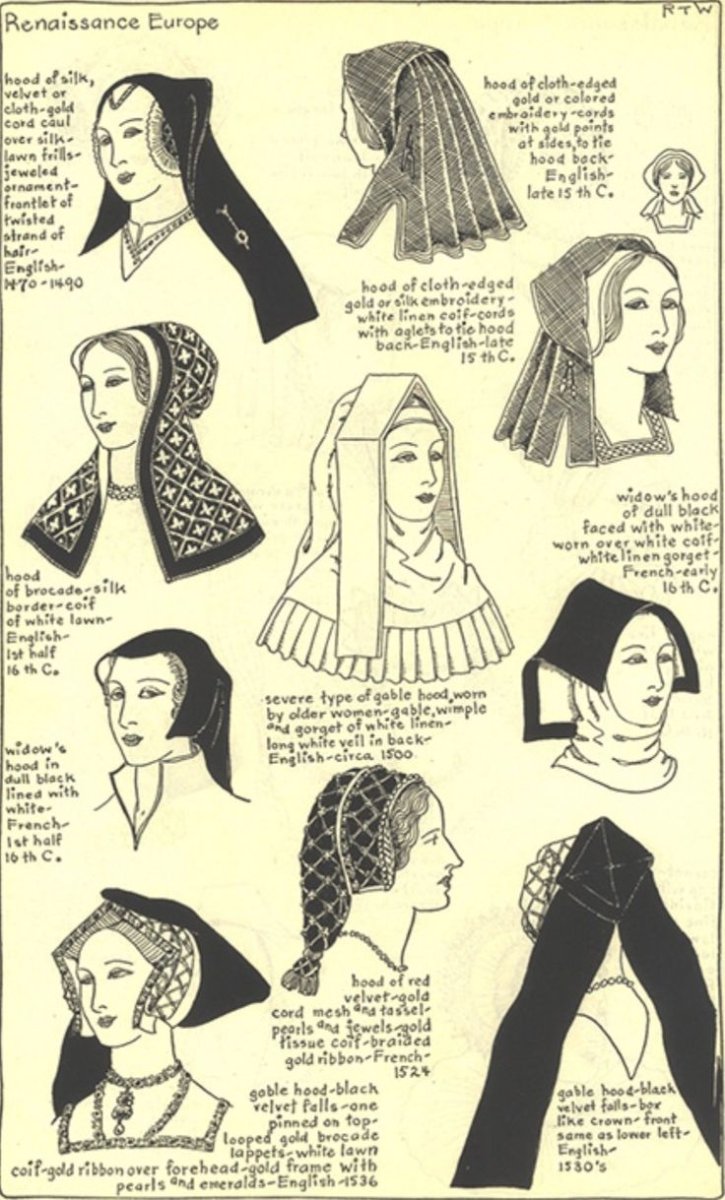 Renaissance Europe
RTW
hood of silk,
velvet or
cloth-gold
cord caul
over silk-
lawn frills-
jeweled
ornament-
frontlet of
twisted
strand of
hair-
English-
1470-1490
hood of cloth-edged
gold or colored
embroidery-cords
with gold points
at sides, to tie
hood back-
English-
late 15 th C.
hood of cloth-edged
gold or silk embroidery-
white linen coif-cords
with aglets to tie hood
back-English-late
15 th C.
hood
of brocade-silk
border-coif
of white lawn-
English-
1st half
16 th C.
widow's hood
of dull black
faced with white-
worn over white coif-
white linen gorget-
French-early
16 th C.
severe type of gable hood, worn
by older women-gable, wimple
and gorget of white linen-
long white veil in back-
English-circa 1500.
widow's
hood in
dull black
lined with
white-
French-
1st half
16 th C.
hood of red
velvet-gold
cord mesh and tassel-
pearls and jewels-gold
tissue coif-braided
gold ribbon-French-
1524
gable hood-black
velvet falls-one
pinned on top-
looped gold brocade
lappets-white lawn
coif-gold ribbon over forehead-gold frame with
pearls and emeralds-English-1536
gable hood-black
velvet falls-box
like crown-front
same as lower left-
English-
1530's